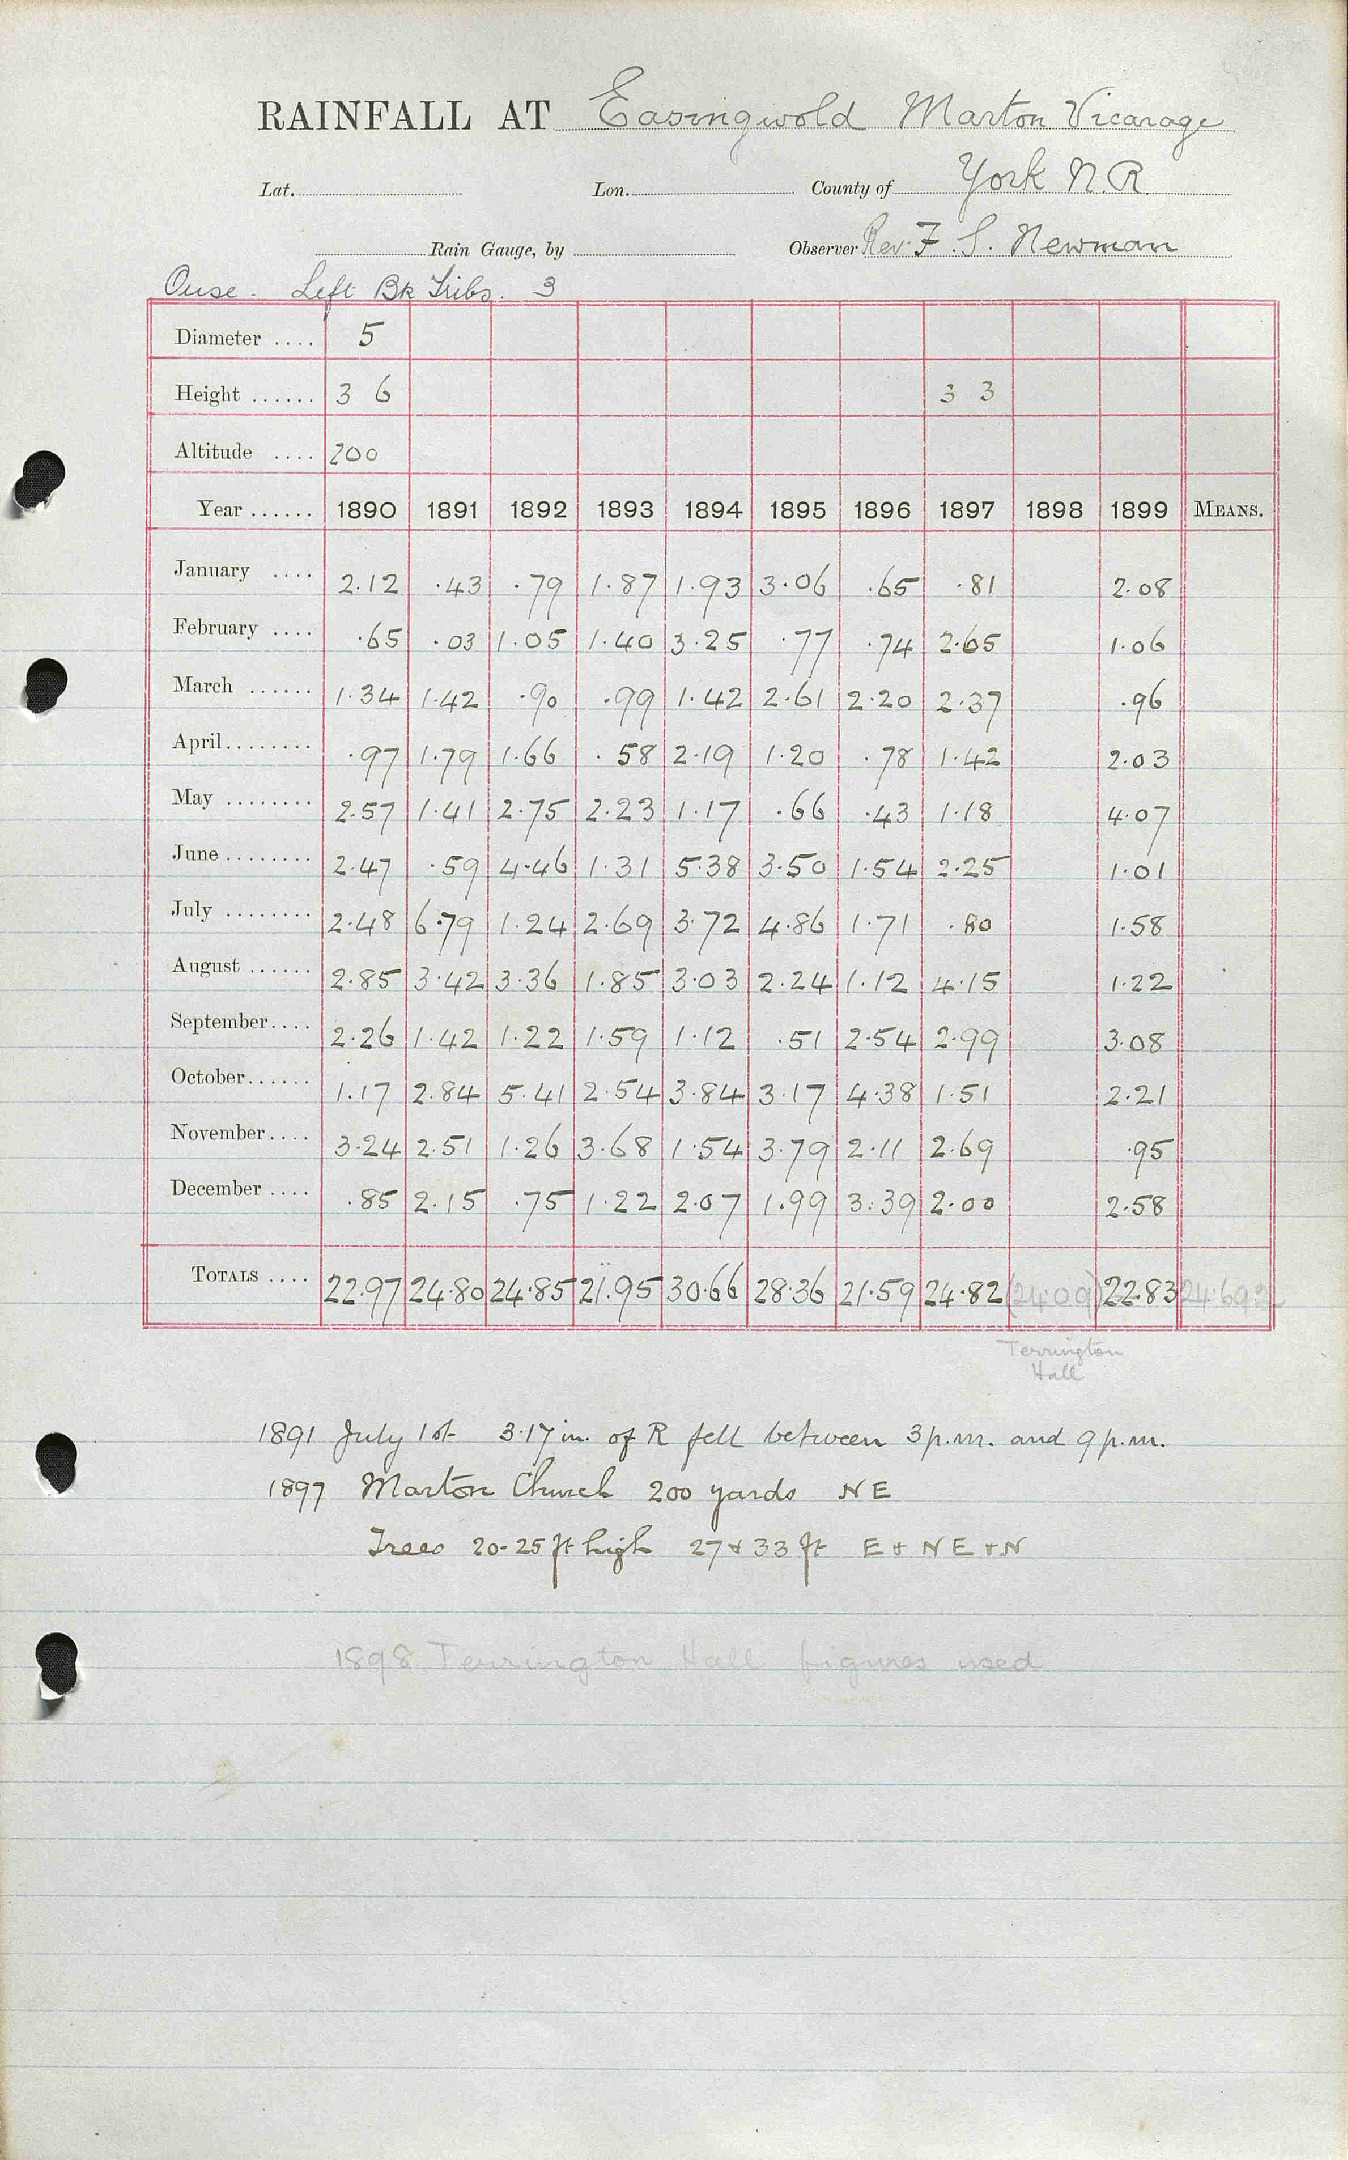 RAINFALL AT Easingwold Marton Vicarage
Lat. Lon. County of York N.R
Rain Gauge, by Observer Rev. F. S. Newman
Ouse. Left Bk Tribs. 3
Diameter .... 5
Height ...... 3 6 3 3
Altitude .... 200
Year ...... 1890 1891 1892 1893 1894 1895 1896 1897 1898 1899 MEANS.
January .... 2.12 .43 .79 1.87 1.93 3.06 .65 .81 2.08
February .... .65 .03 1.05 1.40 3.25 .77 .74 2.65 1.06
March ...... 1.34 1.42 .90 .99 1.42 2.61 2.20 2.37 .96
April ........ .97 1.79 1.66 .58 2.19 1.20 .78 1.42 2.03
May ........ 2.57 1.41 2.75 2.23 1.17 .66 .43 1.18 4.07
June ........ 2.47 .59 4.46 1.31 5.38 3.50 1.54 2.25 1.01
July ........ 2.48 6.79 1.24 2.69 3.72 4.86 1.71 .80 1.58
August ...... 2.85 3.42 3.36 1.85 3.03 2.24 1.12 4.15 1.22
September .... 2.26 1.42 1.22 1.59 1.12 .51 2.54 2.99 3.08
October ...... 1.17 2.84 5.41 2.54 3.84 3.17 4.38 1.51 2.21
November .... 3.24 2.51 1.26 3.68 1.54 3.79 2.11 2.69 .95
December .... .85 2.15 .75 1.22 2.07 1.99 3.39 2.00 2.58
TOTALS .... 22.97 24.80 24.85 21.95 30.66 28.36 21.59 24.82 (24.09) 22.83 24.692
Terrington
Hall
1891 July 1st 3.17 in. of R fell between 3 p.m. and 9 p.m.
1897 Marton Church 200 yards NE
Trees 20-25 ft high 27 & 33 ft E & NE & N
1898 Terrington Hall figures used